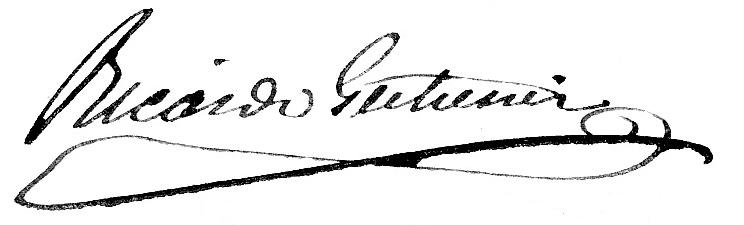 Ricardo Gutierrez